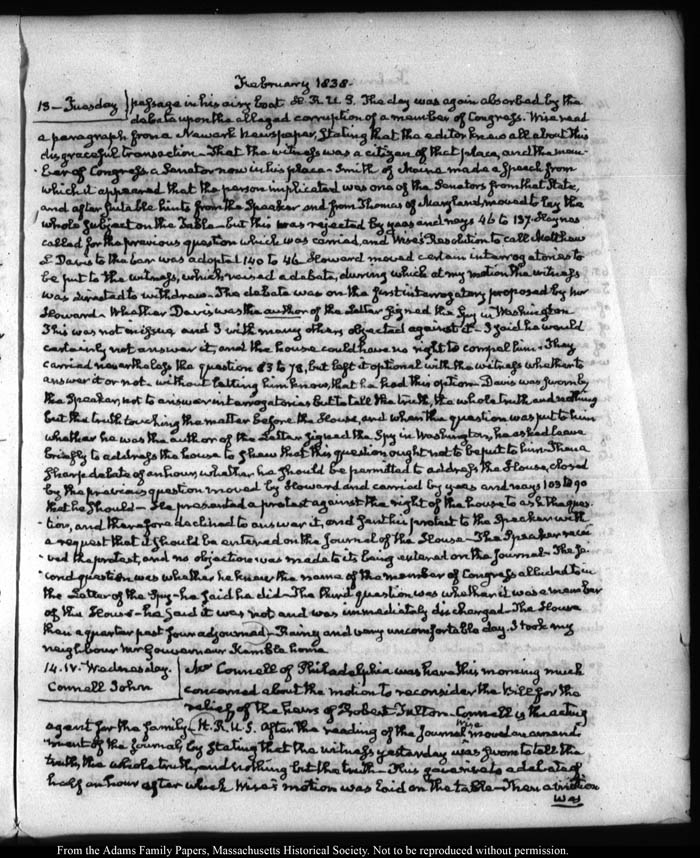 February 1838.
13 - Tuesday passage in his airy boat. H. R. U. S. The day was again absorbed by the
debate upon the alleged corruption of a member of Congress. Wise read
a paragraph from a Newark Newspaper, stating that the editor knew all about this
disgraceful transaction - That the witness was a citizen of that place, and the mem-
ber of Congress a Senator now in his place - Smith of Maine made a speech from
which it appeared that the person implicated was one of the Senators from that State,
and after suitable hints from the Speaker and from Thomas of Maryland, moved to lay the
whole subject on the Table - but this was rejected by yeas and nays 46 to 137. Haynes
called for the previous question which was carried, and Wise's Resolution to call Matthew
L Davis to the bar was adopted 140 to 46. Howard moved certain interrogatories to
be put to the witness, which raised a debate, during which at my motion the witness
was directed to withdraw - The debate was on the first interrogatory proposed by Mr
Howard - Whether Davis was the author of the Letter signed the Spy in Washington
This was not in issue and I with many others objected against it - I said he would
certainly not answer it, and the house could have no right to compel him. They
carried nevertheless the question 83 to 78, but left it optional with the witness whether to
answer it or not - without letting him know, that he had this option - Davis was sworn by
the Speaker, not to answer interrogatories but to tell the truth, the whole truth and nothing
but the truth touching the matter before the House, and when the question was put to him
whether he was the author of the Letter signed the Spy in Washington, he asked leave
briefly to address the house to shew that this question ought not to be put to him - Then a
sharp debate of an hour, whether he should be permitted to address the House, closed
by the previous question moved by Howard and carried by yeas and nays 103 to 90
that he should - He presented a protest against the right of the house to ask the ques-
tion, and therefore declined to answer it, and sent his protest to the Speaker with
a request that it should be entered on the Journal of the House - The Speaker recei-
ved the protest, and no objection was made to its being entered on the Journal - The se-
cond question was whether he knew the name of the member of Congress alluded to in
the Letter of the Spy - he said he did - The third question was whether it was a member
of this House - he said it was not and was immediately discharged - The House
then a quarter past four adjourned - Rainy and very uncomfortable day. I took my
neighbour Mr Gouverneur Kemble home
14. IV. Wednesday. Mr Connell of Philadelphia was here this morning much
Connell John concerned about the motion to reconsider the Bill for the
relief of the heirs of Robert Fulton - Connell is the acting
agent for the family. H. R. U. S. After the reading of the Journal Wise moved an amend-
ment of the Journal, by stating that the witness yesterday was sworn to tell the
truth, the whole truth, and nothing but the truth - This gave rise to a debate of
half an hour after which Wise's motion was laid on the table - Then a motion
was
From the Adams Family Papers, Massachusetts Historical Society. Not to be reproduced without permission.